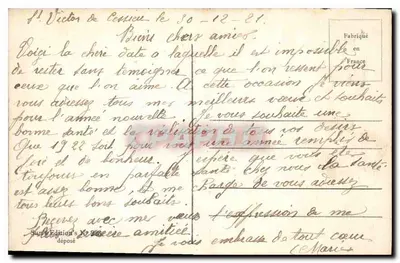 St Victor de Cessieu le 30-12-21.
Biens chers amies
Voici la chère date a laquelle il est impossible
de rester sans temoigner ce que l'on ressent pour
ceux que l'on aime. A cette occasion je viens
vous adresser tous mes meilleurs vœux et souhaits
pour l'année nouvelle. Je vous souhaite une
bonne santé et la réalisation de tous vos désirs
Que 1922 soit pour vous une année remplie de
joie et de bonheur. J'espère que vous êtes
toujours en parfaite santé chez nous la santé
est assez bonne, et me charge de vous adresser
tous leurs bons souhaits.
Recevez avec mes vœux l'expression de ma
sincère amitié
Je vous embrasse de tout cœur
Marie
Fabriqué
en
France
déposé